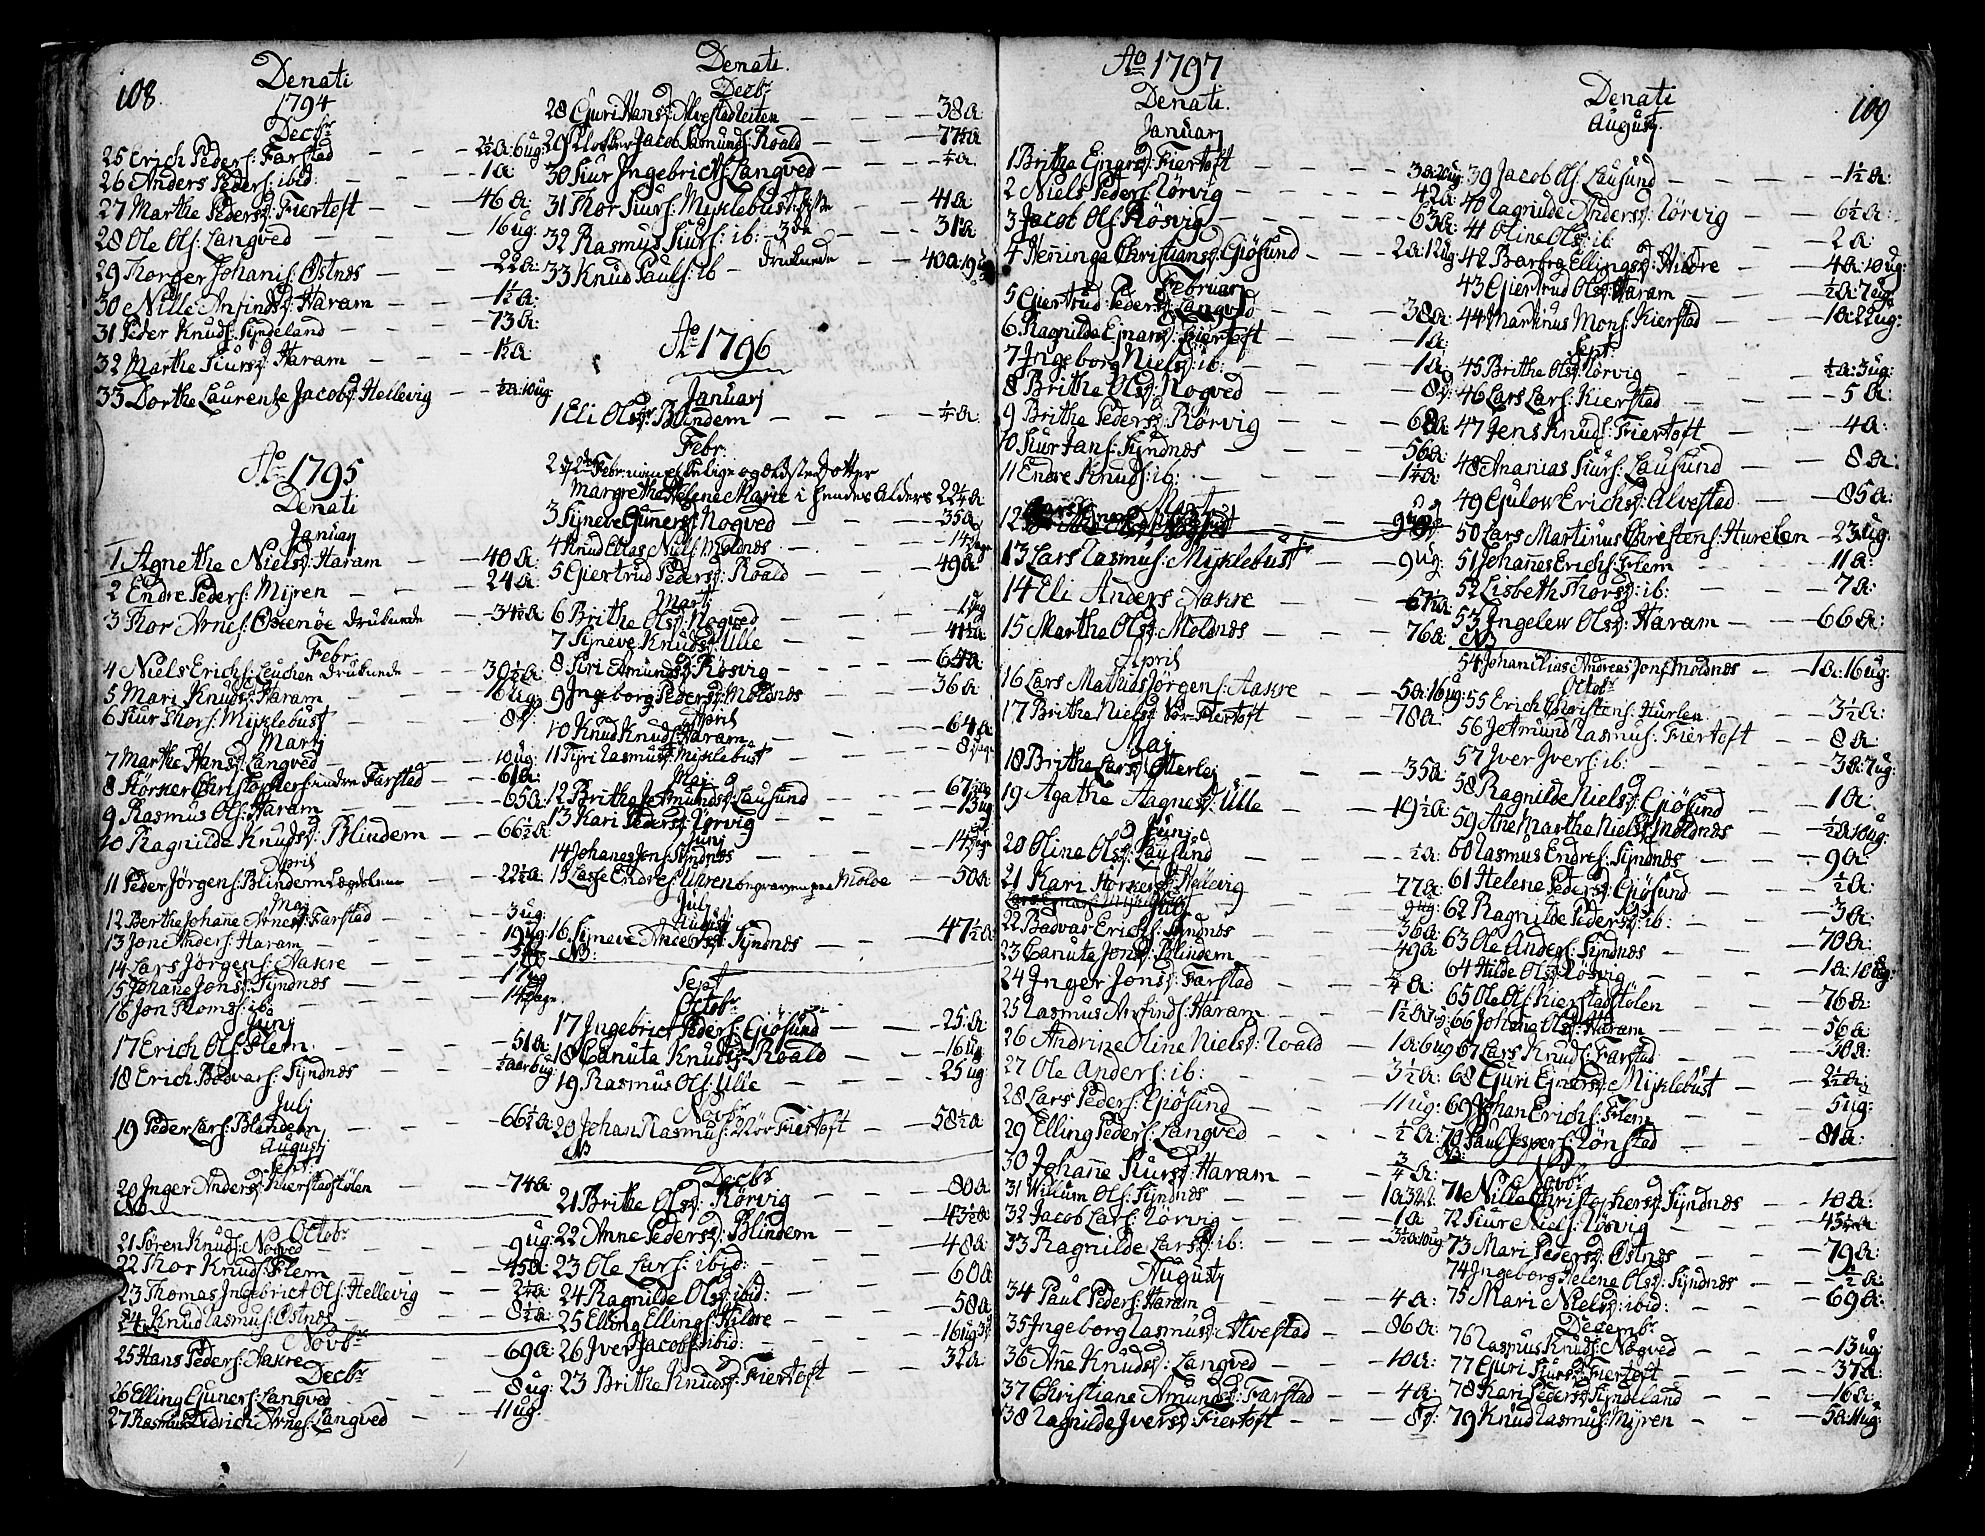 108.
Denati
1794
Decbr
25 Erich Peders: Farstad — — 2½a: 6ug:
26 Anders Peders: ibid: — — 1a
27 Marthe Pedersd: Fiertoft — — 46a:
28 Ole Ols: Langved — — 16ug:
29 Thorger Johanis: Østnæs — — 22a:
30 Nille Anfindsd: Haram — — 1½a:
31 Peder Knuds: Syndeland — — 73a:
32 Marthe Siursd: Haram — — 1½a:
33 Dorthe Laurentze Jacobsd: Hellevig — ½a: 10ug
Ao 1795
Denati
Januarj
1 Agnethe Nielsd: Haram — — 40a:
2 Endre Peders: Myren — — 24a:
3 Thor Arnes: Østenøe druknede — 34½a:
Febr:
4 Niels Erichs: druknede — 30½a:
5 Mari Knudsd: Haram — — 16ug
6 Siur Thors: Myklebust — — 8d:
Martj
7 Marthe Hansd: Langved — — 10ug:
8 Størker Christophers: indre Farstad — 61a:
9 Rasmus Ols: Haram — — 65a:
10 Ragnilde Knudsd: Blindem — 66½a:
April
11 Peder Jørgens: Blindem — 22½a:
Maj
12 Berthe Johane Arnesd: Farstad — 3ug:
13 Joni Anders: Haram — — 19ug:
14 Lars Jørgens: Aakre — —
15 Johane Jonsd: Syndnes — — 17ug
16 Jon Thomes: ib: — — 14dage
Junj
17 Erich Ols: Flem — — 51a:
18 Erich Bødvars: Syndnæs — —
Julj
19 Peder Lars: Blindem — — 66½a:
Augustj
Sept:
20 Inger Andersd: Kierstadstølen — — 74a:
NB
Octobr
21 Søren Knuds: Nogved — — 9ug:
22 Thor Knuds: Flem — — 45a:
23 Thomas Ingebrict Ols: Hellevig — 2½a:
24 Knud Rasmus: Østnæs — — 8½a:
Novbr
25 Hans Peders: Aakre — — 69a:
Decbr
26 Elling Guners: Langved — — 8ug:
27 Rasmus Didrich Arnes: Langved — — 11ug:
Denati.
Decbr
28 Guri Hansd: Alvestadleiten — — 38a:
29 Jacob Asmunds: Roald — — 77½a:
30 Siur Ingebricts: Langved — — ¼a:
31 Thor Siurs: Myklebust — — 41a
32 Rasmus Siurs: ib: — — 31½a
33 Knud Pauls: ib — druknede — 40a: 19ug
Ao 1796
Januarj
1 Eli Olsd: Blindem — — ¼a:
Febr:
2 Febr: min Salige og ældste Dotter
Margrethe Helene Marie i hendes Alders 22¼a
3 Syneve Gunersd: Nogved — — 35a
4 Knud Elias Niels: Moldnes — — 14dage
5 Giertrud Pedersd: Roald — — 49a
Martj
6 Brithe Olsd: Nogved — — 1ug
7 Syneve Knudsd: Ulle — — 41½a
8 Siri Amundsd: Røsvig — — 64a
9 Ingeborg Pedersd: Moldnæs — — 36a
April
10 Knud Knuds: Haram — — 64a
11 Syri Rasmusd: Myklebust — — 8dage
Maj
12 Brithe Jetmundsd: Lausund — — 67½a
13 Kari Pedersd: Rørvig — — 13ug
Junj
14 Johanes Jons: Syndnæs — — 14dage
15 Lasse Endres: Uhren begraven paa Molde — 50a
Julj
Augustj
16 Syneve Andersd: Syndnæs — — 47½a
NB:
Sept
Octobr
17 Ingebrict Peders: Giøsund — — 25:a
18 Canuta Knudsd: Roald — — 16ug
19 Rasmus Ols: Ulle — — 25ug
Novbr
20 Johan Rasmus: Nør Fiertoft — — 58½a
NB
Decbr
21 Brithe Olsd: Rørvig — — 80a
22 Anne Pedersd: Blindem — — 43½a
23 Ole Lars: ibid: — — 48a
24 Ragnilde Olsd: ibid: — — 60a
25 Elling Ellings: Hildre — — 58a
26 Iver Jacobs: ibid: — — 16ug 3d
23 Brithe Knudsd: Fiertoft — — 32a:
Ao 1797
Denati.
Januarj
1 Brithe Ejnersd: Fiertoft — — 3a: 20ug:
2 Niels Peders: Rørvig — — 42a
3 Jacob Ols: Røsvig — — 63a
4 Heninga Christiansd: Giøsund — — 2a: 12ug
Februarj
5 Giertrud Pedersd: Langved — — 38a:
6 Ragnilde Ejnarsd: Fiertoft — — 1a:
7 Ingeborg Nielsd: ib: — — 1a:
8 Brithe Olsd: Nogved — — 8d:
9 Brithe Pedersd: Rørvig — — 68a:
10 Siur Jans: Syndnes — — 56a:
11 Endre Knuds: ib: — — 1¼a:
Martj
12
13 Lars Rasmus: Myklebust — — 9ug:
14 Eli Anders Aakre — — 67½a:
15 Marthe Olsd: Moldnæs — — 76a:
April
16 Lars Mathias Jørgens: Aakre — — 5a: 16ug:
17 Brithe Nielsd: Nør-Fiertoft — — 78a:
Maj
18 Brithe Larsd: Otterlej — — 35a:
19 Agathe Aagnesd: Ulle — — 19½a:
Junj
20 Oline Olsd: Lausund — — ½a:
21 Kari Størkersd: Hellevig — — 77a:
Lars Ejnars: Myklebust — 9ug:
Julj
22 Bødvar Erichs: Syndnes — — 36a:
23 Canuta Jonsd: Blindem — — 49a:
24 Inger Jonsd: Farstad — — ¼a:
25 Rasmus Anfinds: Haram — —
26 Andrine Oline Nielsd: Roald — — 1a: 6ug
27 Ole Anders: ib: — — 3½a:
28 Lars Peders: Giøsund — — 11ug:
29 Elling Peders: Langved — — ½a:
30 Johane Siursd: Haram — — ¾a:
31 Willum Ols: Syndnæs — —
32 Jacob Lars: Rørvig — — 1a
33 Ragnilde Larsd: ib: — — 3½a: 10ug
Augustj
34 Paul Peders: Haram — — 4a:
35 Ingeborg Rasmusd: Alvestad — — 86a:
36 Ane Knudsd: Langved — — 10a:
37 Christiane Amundsd: Farstad — — 4a:
38 Ragnilde Iversd: Fiertoft — — 8d:
109
Denati
Augustj
39 Jacob Ols: Lausund — — 1½a:
40 Ragnilde Andersd: Rørvig — — 6½a:
41 Oline Olsd: ib — — 2a:
42 Barbra Ellingsd: Hildre — — 4a: 10ug:
43 Giertrud Olsd: Haram — — ½a: 7ug
44 Martinus Mons: Kierstad — — 1a: 22ug:
Sept:
45 Brithe Olsd: Rørvig — — ½a: 3ug:
46 Lars Lars: Kierstad — — 5a:
47 Jens Knuds: Fiertoft — — 4a:
48 Ananias Siurs: Lausund — — 8a:
49 Gulow Erichsd: Alvestad — — 85a:
50 Lars Martinus Christens: Hurelen — 23ug:
51 Johanes Erichs: Flem — — 11a:
52 Lisbeth Thorsd: ib: — — 7a:
53 Ingelew Olsd: Haram — — 66a:
NB
54 Johan Elias Andreas Jons: Moldnæs — 1a: 16ug:
Octobr
55 Erich Christens: Hurlen — — 3½a:
56 Jetmund Rasmus: Fiertoft — — 8a:
57 Iver Ivers: ib: — — 3a: 7ug:
58 Ragnilde Nielsd: Giøsund — — 1a:
59 Ane Marthe Nielsd: Moldnæs — — ½a: 10ug:
60 Rasmus Endres: Syndnæs — — 9a:
61 Helene Pedersd: Giøsund — — ½a:
62 Ragnilde Pedersd: ib: — — 3a:
63 Ole Anders: Syndnæs — — 70a:
64 Hilde Olsd: Røsvig — — 1a: 10ug:
65 Ole Ols: Kierstadstølen — — 76a:
66 Johane Olsd: Haram — — 56a:
67 Lars Knuds: Farstad — — 30a:
68 Guri Ejnersd: Myklebust — — 2½a:
69 Johan Erichs: Flem — — 5ug:
70 Paul Jespers: Rønstad — — 81a:
NB:
Novbr
71 Nille Christophersd: Syndnæs — — 10a:
72 Siur Niels: Røsvig — — 45½a:
73 Mari Pedersd: Østnæs — — 79a:
74 Ingeborg Helene Olsd: Syndnæs — — ½a:
75 Mari Nielsd: ibid: — — 69a:
Decembr
76 Rasmus Knuds: Nogved — — 13ug:
77 Guri Siursd: Fiertoft — — 37a:
78 Kari Pedersd: Syndeland — — 16a:
79 Knud Rasmus: Myren — — 5a: 11ug: